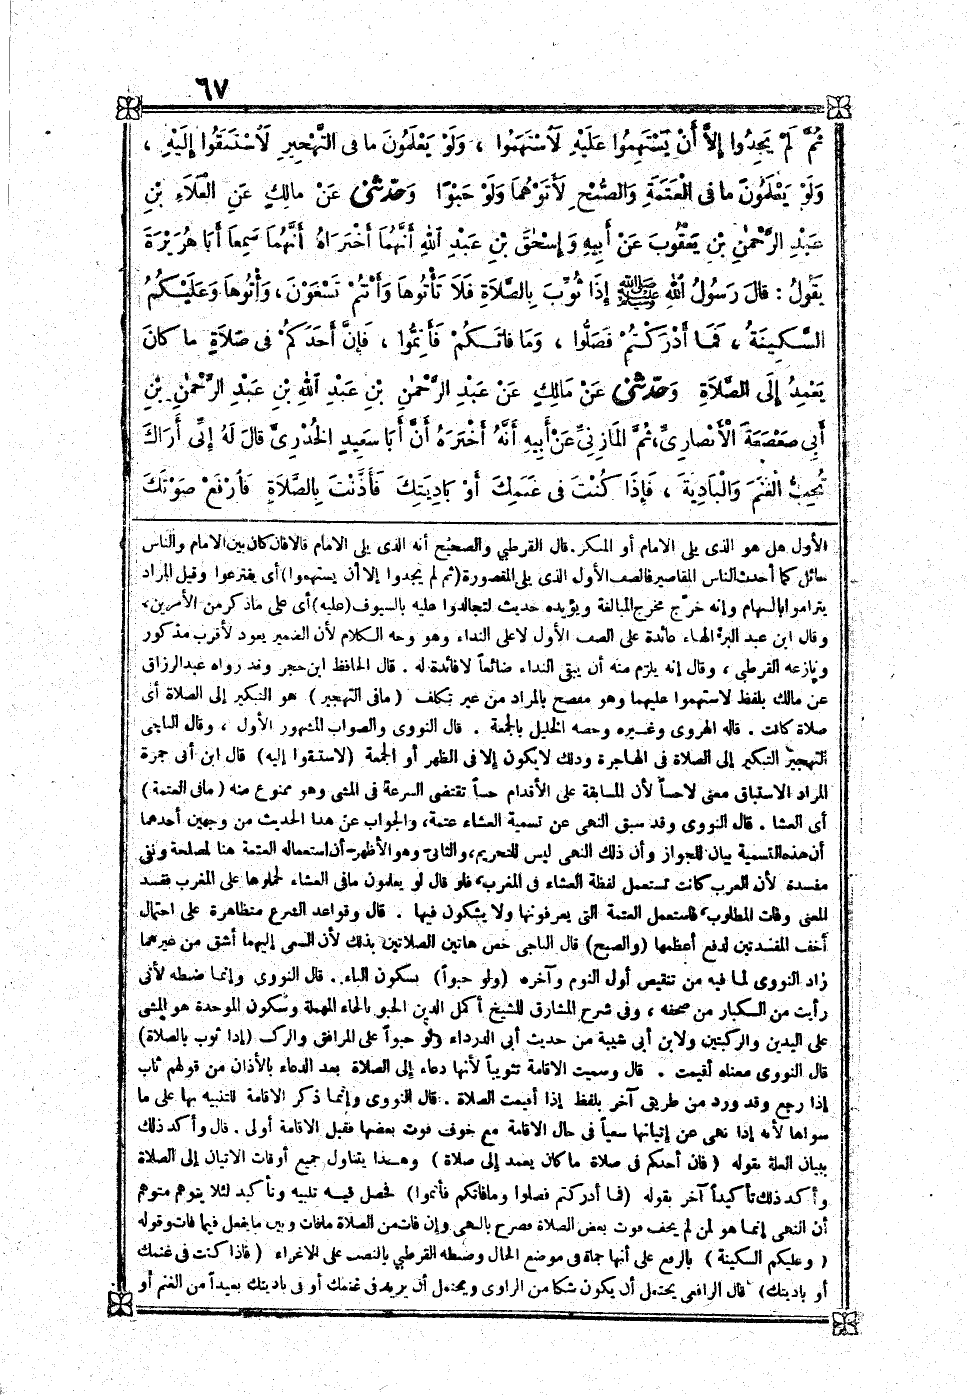 ٦٧
ثُمَّ لَمْ يَجِدُوا إِلاَّ أَنْ يَسْتَهِمُوا عَلَيْهِ لَاسْتَهَمُوا ، وَلَوْ يَعْلَمُونَ مَا فِى التَّهْجِيرِ لَاسْتَبَقُوا إِلَيْهِ ،
وَلَوْ يَعْلَمُونَ مَا فِى الْعَتَمَةِ وَالصُّبْحِ لَأَتَوْهُمَا وَلَوْ حَبْوًا وَحَدَّثَنِى عَنْ مَالِكٍ عَنِ الْعَلَاءِ بْنِ
عَبْدِ الرَّحْمٰنِ بْنِ يَعْقُوبَ عَنْ أَبِيهِ وَإِسْحٰقَ بْنِ عَبْدِ اللهِ أَنَّهُمَا أَخْبَرَاهُ أَنَّهُمَا سَمِعَا أَبَا هُرَيْرَةَ
يَقُولُ : قَالَ رَسُولُ اللهِ ﷺ إِذَا ثُوِّبَ بِالصَّلَاةِ فَلَا تَأْتُوهَا وَأَنْتُمْ تَسْعَوْنَ ، وَأْتُوهَا وَعَلَيْكُمُ
السَّكِينَةُ ، فَمَا أَدْرَكْتُمْ فَصَلُّوا ، وَمَا فَاتَكُمْ فَأَتِمُّوا ، فَإِنَّ أَحَدَكُمْ فِى صَلَاةٍ مَا كَانَ
يَعْمِدُ إِلَى الصَّلَاةِ وَحَدَّثَنِى عَنْ مَالِكٍ عَنْ عَبْدِ الرَّحْمٰنِ بْنِ عَبْدِ اللهِ بْنِ عَبْدِ الرَّحْمٰنِ بْنِ
أَبِى صَعْصَعَةَ الْأَنْصَارِىِّ، ثُمَّ الْمَازِنِىِّ عَنْ أَبِيهِ أَنَّهُ أَخْبَرَهُ أَنَّ أَبَا سَعِيدٍ الْخُدْرِىَّ قَالَ لَهُ إِنِّى أَرَاكَ
تُحِبُّ الْغَنَمَ وَالْبَادِيَةَ ، فَإِذَا كُنْتَ فِى غَنَمِكَ أَوْ بَادِيَتِكَ فَأَذَّنْتَ بِالصَّلَاةِ فَارْفَعْ صَوْتَكَ
الأول هل هو الذى يلى الامام أو المبكر . قال القرطبي والصحيح أنه الذى يلى الامام قالا فان كان بين الامام والناس
حائل كما أحدث الناس المقاصير فالصف الأول الذى يلى المقصورة (ثم لم يجدوا إلا أن يستهموا) أى يقترعوا وقيل المراد
يتراموا بالسهام وإنه خرّج مخرج المبالغة ويؤيده حديث لتجالدوا عليه بالسيوف (عليه) أى على ماذكر من الأمرين،
وقال ابن عبد البر الهاء عائدة على الصف الأول لاعلى النداء وهو وجه الكلام لأن الضمير يعود لأقرب مذكور
ونازعه القرطبي ، وقال إنه يلزم منه أن يبقى النداء ضائعاً لافائدة له . قال الحافظ ابن حجر وقد رواه عبدالرزاق
عن مالك بلفظ لاستهموا عليهما وهو مفصح بالمراد من غير تكلف ( مافى التهجير ) هو التبكير إلى الصلاة أى
صلاة كانت . قاله الهروى وغيره وخصه الخليل بالجمعة . قال النووى والصواب المشهور الأول ، وقال الباجى
التهجير التبكير إلى الصلاة فى الهاجرة وذلك لايكون إلا فى الظهر أو الجمعة (لاستبقوا إليه) قال ابن أبى جمرة
المراد الاستباق معنى لاحساً لأن المسابقة على الأقدام حساً تقتضى السرعة فى المشى وهو ممنوع منه ( مافى العتمة )
أى العشا . قال النووى وقد سبق النهى عن تسمية العشاء عتمة، والجواب عن هذا الحديث من وجهين أحدهما
أن هذه التسمية بيان للجواز وأن ذلك النهى ليس للتحريم، والثانى وهو الأظهر أن استعماله العتمة هنا لمصلحة ونفى
مفسدة لأن العرب كانت تستعمل لفظة العشاء فى المغرب، فلو قال لو يعلمون مافى العشاء لحملوها على المغرب ففسد
المعنى وفات المطلوب، فاستعمل العتمة التى يعرفونها ولا يشكون فيها . قال وقواعد الشرع متظاهرة على احتمال
أخف المفسدتين لدفع أعظمها (والصبح) قال الباجى خص هاتين الصلاتين بذلك لأن السعى إليهما أشق من غيرهما
زاد النووى لما فيه من تنقيص أول النوم وآخره (ولو حبواً) بسكون الباء . قال النووى وإنما ضبطه لأنى
رأيت من الكبار من صحفه ، وفى شرح المشارق للشيخ أكمل الدين الحبو بالحاء المهملة وسكون الموحدة هو المشى
على اليدين والركبتين ولابن أبى شيبة من حديث أبى الدرداء ولو حبواً على المرافق والركب (إذا ثوب بالصلاة)
قال النووى معناه أقيمت . قال وسميت الاقامة تثويباً لأنها دعاء إلى الصلاة بعد الدعاء بالأذان من قولهم ثاب
إذا رجع وقد ورد من طريق آخر بلفظ إذا أقيمت الصلاة . قال النووى وإنما ذكر الاقامة للتنبيه بها على ما
سواها لأنه إذا نهى عن إتيانها سعياً فى حال الاقامة مع خوف فوت بعضها فقبل الاقامة أولى . قال وأكد ذلك
ببيان العلة بقوله ( فان أحدكم فى صلاة ما كان يعمد إلى صلاة ) وهذا يتناول جميع أوقات الاتيان إلى الصلاة
وأكد ذلك تأكيداً آخر بقوله (فما أدركتم فصلوا ومافاتكم فأتموا) فحصل فيه تنبيه وتأكيد لئلا يتوهم متوهم
أن النهى إنما هو لمن لم يخف فوت بعض الصلاة فصرح بالنهى وإن فات من الصلاة مافات وبين مايفعل فيما فات وقوله
( وعليكم السكينة ) بالرفع على أنها جملة فى موضع الحال وضبطه القرطبي بالنصب على الاغراء ( فاذا كنت فى غنمك
أو باديتك) قال الرافعى يحتمل أن يكون شكا من الراوى ويحتمل أن يريد فى غنمك أو فى باديتك بعيداً من الغنم أو